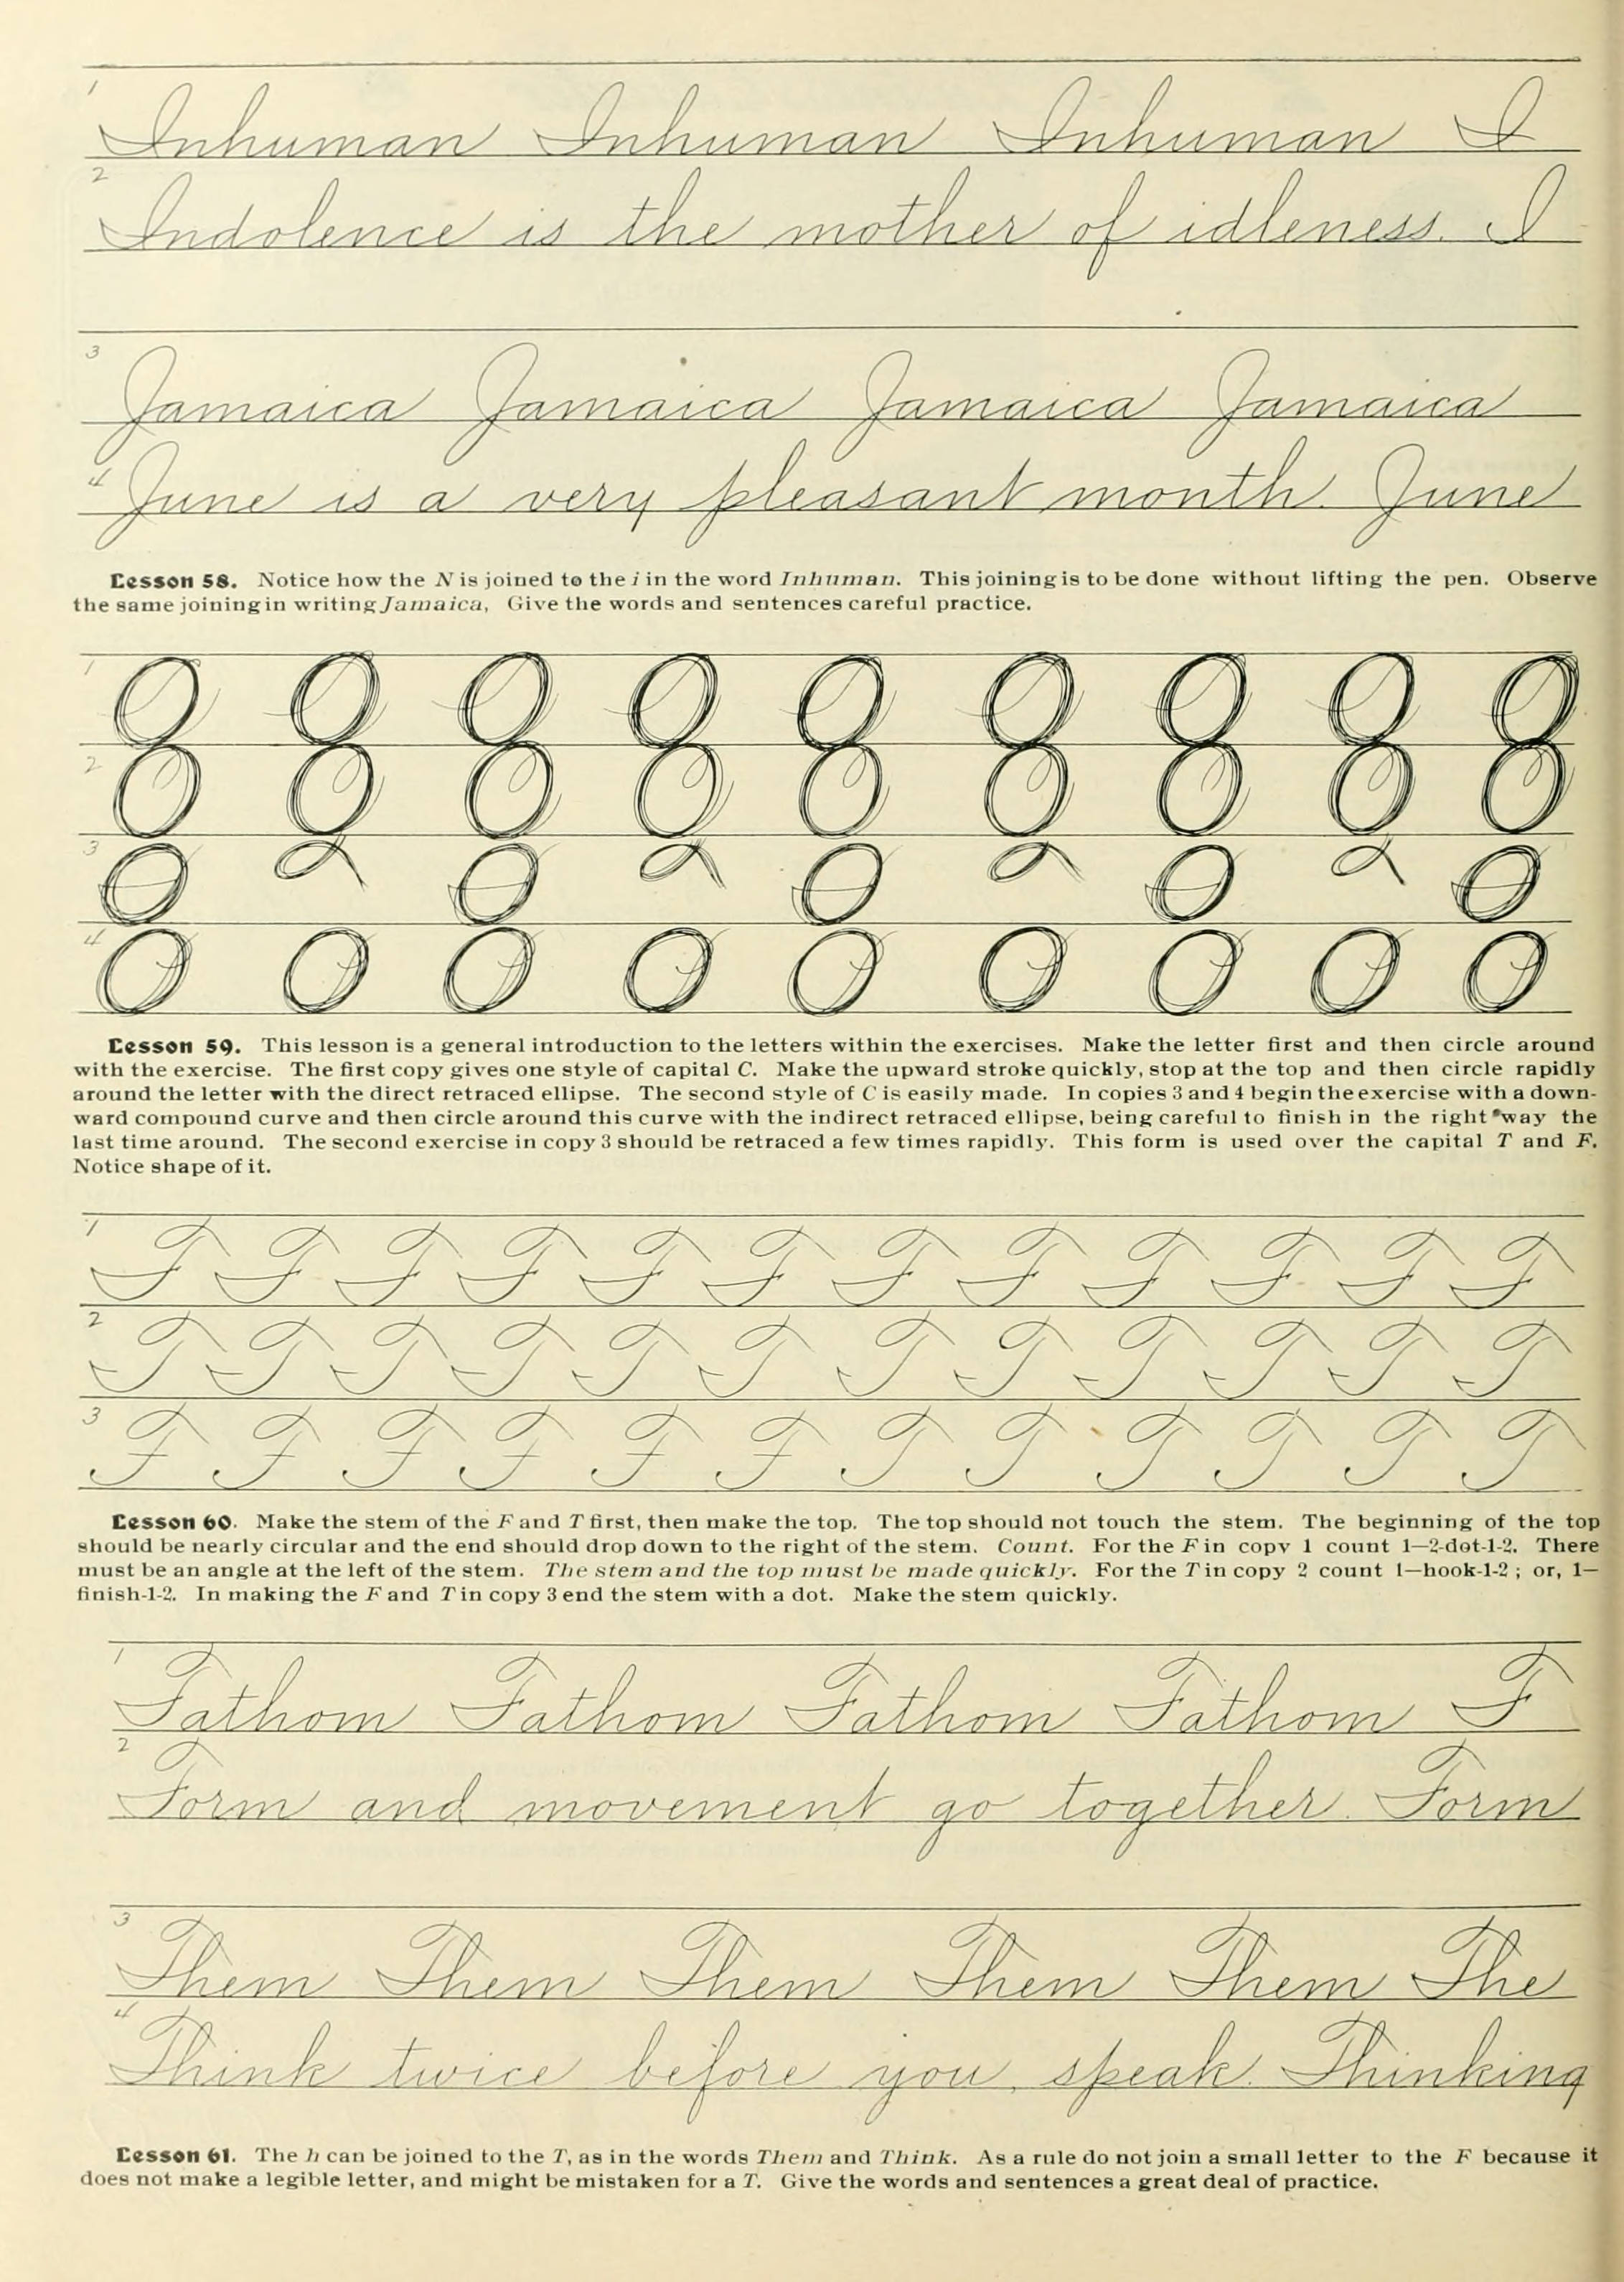 1
Inhuman Inhuman Inhuman I
2
Indolence is the mother of idleness. I
3
Jamaica Jamaica Jamaica Jamaica
4
June is a very pleasant month. June
Lesson 58. Notice how the N is joined to the i in the word Inhuman. This joining is to be done without lifting the pen. Observe
the same joining in writing Jamaica, Give the words and sentences careful practice.
1
2
3
4
Lesson 59. This lesson is a general introduction to the letters within the exercises. Make the letter first and then circle around
with the exercise. The first copy gives one style of capital C. Make the upward stroke quickly, stop at the top and then circle rapidly
around the letter with the direct retraced ellipse. The second style of C is easily made. In copies 3 and 4 begin the exercise with a down-
ward compound curve and then circle around this curve with the indirect retraced ellipse, being careful to finish in the right way the
last time around. The second exercise in copy 3 should be retraced a few times rapidly. This form is used over the capital T and F.
Notice shape of it.
1
F F F F F F F F F F F F
2
T T T T T T T T T T T T
3
F F F F F F T T T T T T
Lesson 60. Make the stem of the F and T first, then make the top. The top should not touch the stem. The beginning of the top
should be nearly circular and the end should drop down to the right of the stem. Count. For the F in copy 1 count 1—2-dot-1-2. There
must be an angle at the left of the stem. The stem and the top must be made quickly. For the T in copy 2 count 1—hook-1-2; or, 1—
finish-1-2. In making the F and T in copy 3 end the stem with a dot. Make the stem quickly.
1
Fathom Fathom Fathom Fathom F
2
Form and movement go together. Form
3
Them Them Them Them Them The
4
Think twice before you speak. Thinking
Lesson 61. The h can be joined to the T, as in the words Them and Think. As a rule do not join a small letter to the F because it
does not make a legible letter, and might be mistaken for a T. Give the words and sentences a great deal of practice.